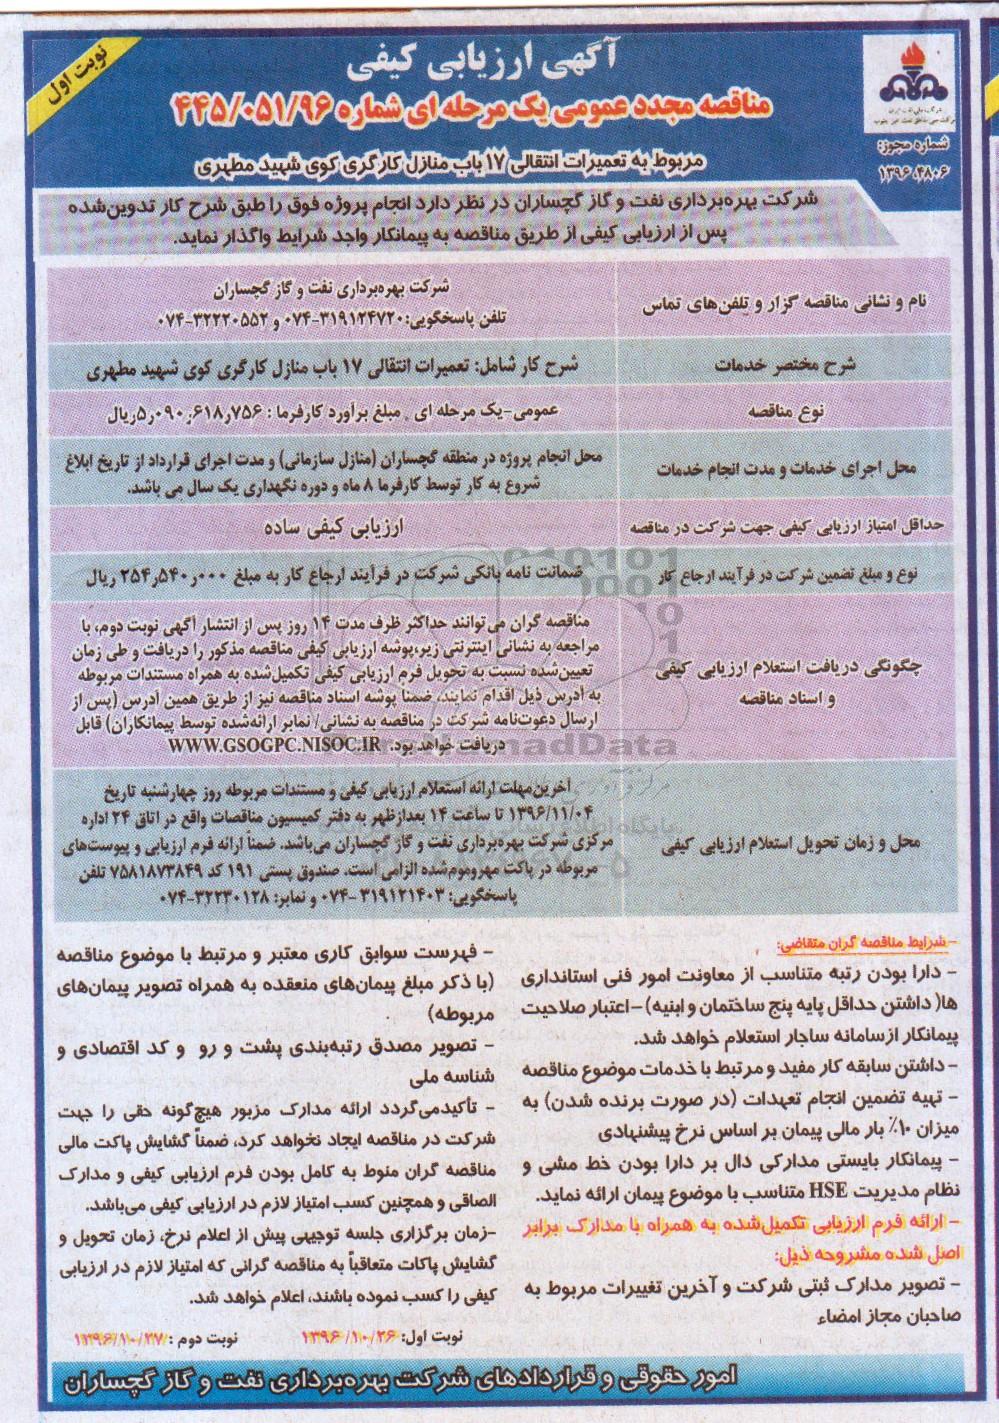 نوبت اول
آگهی ارزیابی کیفی
مناقصه مجدد عمومی یک مرحله ای شماره ۴۴۵/۰۵۱/۹۶
مربوط به تعمیرات انتقالی ۱۷ باب منازل کارگری کوی شهید مطهری
شماره مجوز:
۱۳۹۶،۴۸۰۶
شرکت بهره‌برداری نفت و گاز گچساران در نظر دارد انجام پروژه فوق را طبق شرح کار تدوین‌شده
پس از ارزیابی کیفی از طریق مناقصه به پیمانکار واجد شرایط واگذار نماید.
نام و نشانی مناقصه گزار و تلفن‌های تماس
شرکت بهره‌برداری نفت و گاز گچساران
تلفن پاسخگویی: ۳۱۹۱۲۴۷۲۰-۰۷۴ و ۳۲۲۲۰۵۵۲-۰۷۴
شرح مختصر خدمات
شرح کار شامل: تعمیرات انتقالی ۱۷ باب منازل کارگری کوی شهید مطهری
نوع مناقصه
عمومی-یک مرحله ای . مبلغ برآورد کارفرما : ۵٫۰۹۰٫۶۱۸٫۷۵۶ریال
محل اجرای خدمات و مدت انجام خدمات
محل انجام پروژه در منطقه گچساران (منازل سازمانی) و مدت اجرای قرارداد از تاریخ ابلاغ
شروع به کار توسط کارفرما ۸ ماه و دوره نگهداری یک سال می باشد.
حداقل امتیاز ارزیابی کیفی جهت شرکت در مناقصه
ارزیابی کیفی ساده
نوع و مبلغ تضمین شرکت در فرآیند ارجاع کار
ضمانت نامه بانکی شرکت در فرآیند ارجاع کار به مبلغ ۲۵۴٫۵۴۰٫۰۰۰ ریال
چگونگی دریافت استعلام ارزیابی کیفی
و اسناد مناقصه
مناقصه گران می‌توانند حداکثر ظرف مدت ۱۴ روز پس از انتشار آگهی نوبت دوم، با
مراجعه به نشانی اینترنتی زیر،پوشه ارزیابی کیفی مناقصه مذکور را دریافت و طی زمان
تعیین‌شده نسبت به تحویل فرم ارزیابی کیفی تکمیل‌شده به همراه مستندات مربوطه
به آدرس ذیل اقدام نمایند. ضمنا پوشه اسناد مناقصه نیز از طریق همین آدرس (پس از
ارسال دعوت‌نامه شرکت در مناقصه به نشانی/ نمابر ارائه‌شده توسط پیمانکاران) قابل
دریافت خواهد بود. WWW.GSOGPC.NISOC.IR
محل و زمان تحویل استعلام ارزیابی کیفی
آخرین‌مهلت ارائه استعلام ارزیابی کیفی و مستندات مربوطه روز چهارشنبه تاریخ
۱۳۹۶/۱۱/۰۴ تا ساعت ۱۴ بعدازظهر به دفتر کمیسیون مناقصات واقع در اتاق ۲۴ اداره
مرکزی شرکت بهره‌برداری نفت و گاز گچساران می‌باشد. ضمناً ارائه فرم ارزیابی و پیوست‌های
مربوطه در پاکت مهروموم‌شده الزامی است. صندوق پستی ۱۹۱ کد ۷۵۸۱۸۷۳۸۴۹
پاسخگویی: ۳۱۹۱۲۱۴۰۳-۰۷۴ و نمابر: ۳۲۲۳۰۱۲۸-۰۷۴
ParsNamadData
-شرایط مناقصه گران متقاضی:
- دارا بودن رتبه متناسب از معاونت امور فنی استانداری
ها( داشتن حداقل پایه پنج ساختمان و ابنیه) -اعتبار صلاحیت
پیمانکار ازسامانه ساجار استعلام خواهد شد.
-داشتن سابقه کار مفید و مرتبط با خدمات موضوع مناقصه
- تهیه تضمین انجام تعهدات (در صورت برنده شدن) به
میزان ۱۰٪ بار مالی پیمان بر اساس نرخ پیشنهادی
- پیمانکار بایستی مدارکی دال بر دارا بودن خط مشی و
نظام مدیریت HSE متناسب با موضوع پیمان ارائه نماید.
- ارائه فرم ارزیابی تکمیل‌شده به همراه با مدارک برابر
اصل شده مشروحه ذیل:
- تصویر مدارک ثبتی شرکت و آخرین تغییرات مربوط به
صاحبان مجاز امضاء
- فهرست سوابق کاری معتبر و مرتبط با موضوع مناقصه
(با ذکر مبلغ پیمان‌های منعقده به همراه تصویر پیمان‌های
مربوطه)
- تصویر مصدق رتبه‌بندی پشت و رو و کد اقتصادی و
شناسه ملی
- تأکیدمی‌گردد ارائه مدارک مزبور هیچ‌گونه حقی را جهت
شرکت در مناقصه ایجاد نخواهد کرد، ضمناً گشایش پاکت مالی
مناقصه گران منوط به کامل بودن فرم ارزیابی کیفی و مدارک
الصاقی و همچنین کسب امتیاز لازم در ارزیابی کیفی می‌باشد.
-زمان برگزاری جلسه توجیهی پیش از اعلام نرخ، زمان تحویل و
گشایش پاکات متعاقباً به مناقصه گرانی که امتیاز لازم در ارزیابی
کیفی را کسب نموده باشند، اعلام خواهد شد.
نوبت اول: ۱۳۹۶/۱۰/۲۶ نوبت دوم : ۱۳۹۶/۱۰/۲۷
امور حقوقی و قراردادهای شرکت بهره‌برداری نفت و گاز گچساران